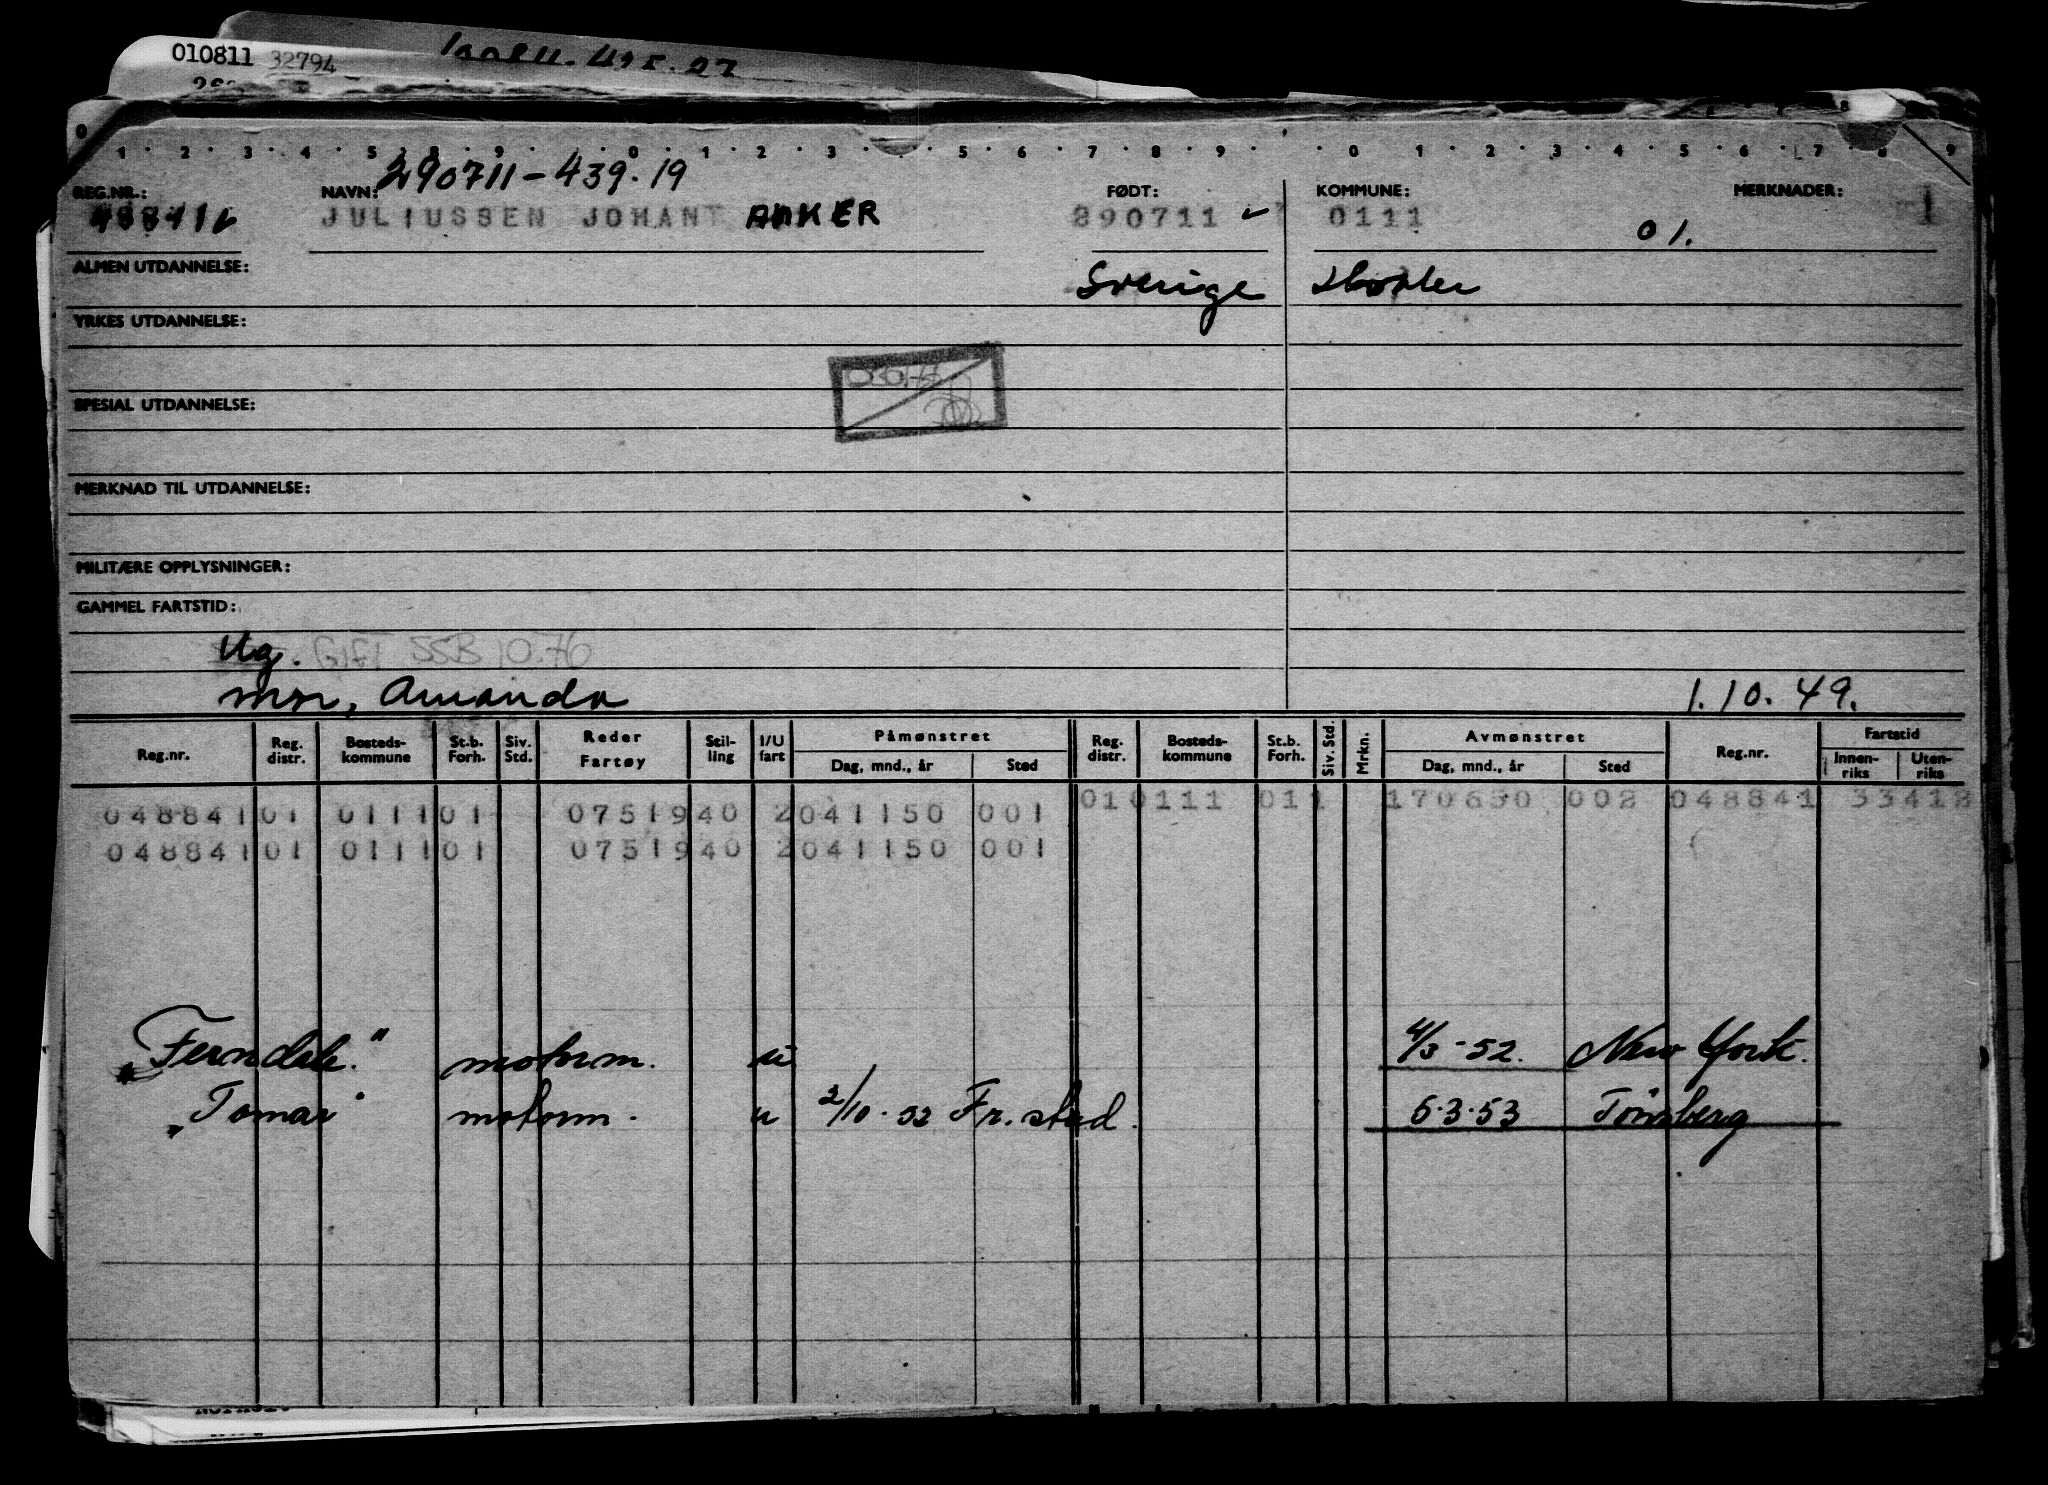 010811 32794
0 1 2 3 4 5 8 9 0 1 2 3 5 6 7 8 9 0 1 2 3 4 5 6 7 8 9
290711-439.19
REG.NR.: NAVN: FØDT: KOMMUNE: MERKNADER:
48841 JULIUSSEN JOHAN ANKER 290711 0111 1
01.
ALMEN UTDANNELSE: Sverige Hvaler
YRKES UTDANNELSE:
SPESIAL UTDANNELSE:
MERKNAD TIL UTDANNELSE:
MILITÆRE OPPLYSNINGER:
GAMMEL FARTSTID:
Ug. GIFT SSB 10.76
mor, Amanda 1.10.49.
Reg.nr. Reg. distr. Bosteds-kommune St.b. Forh. Siv. Std. Reder Fartøy Stil-ling I/U fart Påmønstret Dag, mnd., år Sted Reg. distr. Bosteds-kommune St.b. Forh. Siv. Std. Mrkn. Avmønstret Dag, mnd., år Sted Reg.nr. Fartstid Innen-riks Uten-riks
010111 011 170650 002 048841 33412
048841 01 0111 01 07519 40 2 041150 001
048841 01 0111 01 07519 40 2 041150 001
"Ferndale." motorm. u 4/3-52. New York.
"Tomar" motorm. u 2/10-52 Fr.stad. 5.3.53 Tønsberg